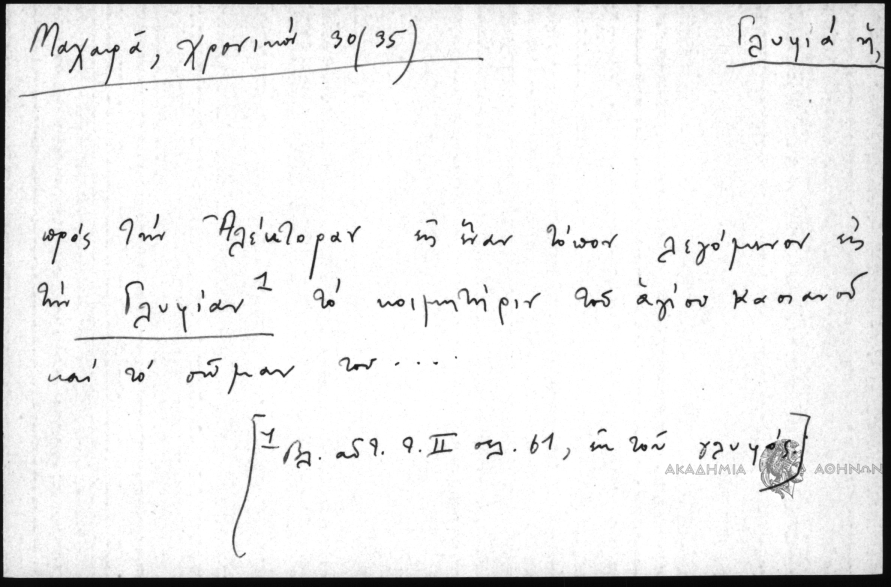 Μαχαιρᾶ, χρονικόν 30(35)
Γλυφιά ἡ,
πρός τήν Ἀλέκτοραν εἰς ἕναν τόπον λεγόμενον εἰς
τήν Γλυφίαν¹ τό κοιμητήριν τοῦ ἁγίου Κασιανοῦ
καί τό σῶμαν του....
[¹ Βλ. αὐτ. τ. II σελ. 61, ἐκ τοῦ γλυφός.]
ΑΚΑΔΗΜΙΑ ΑΘΗΝΩΝ